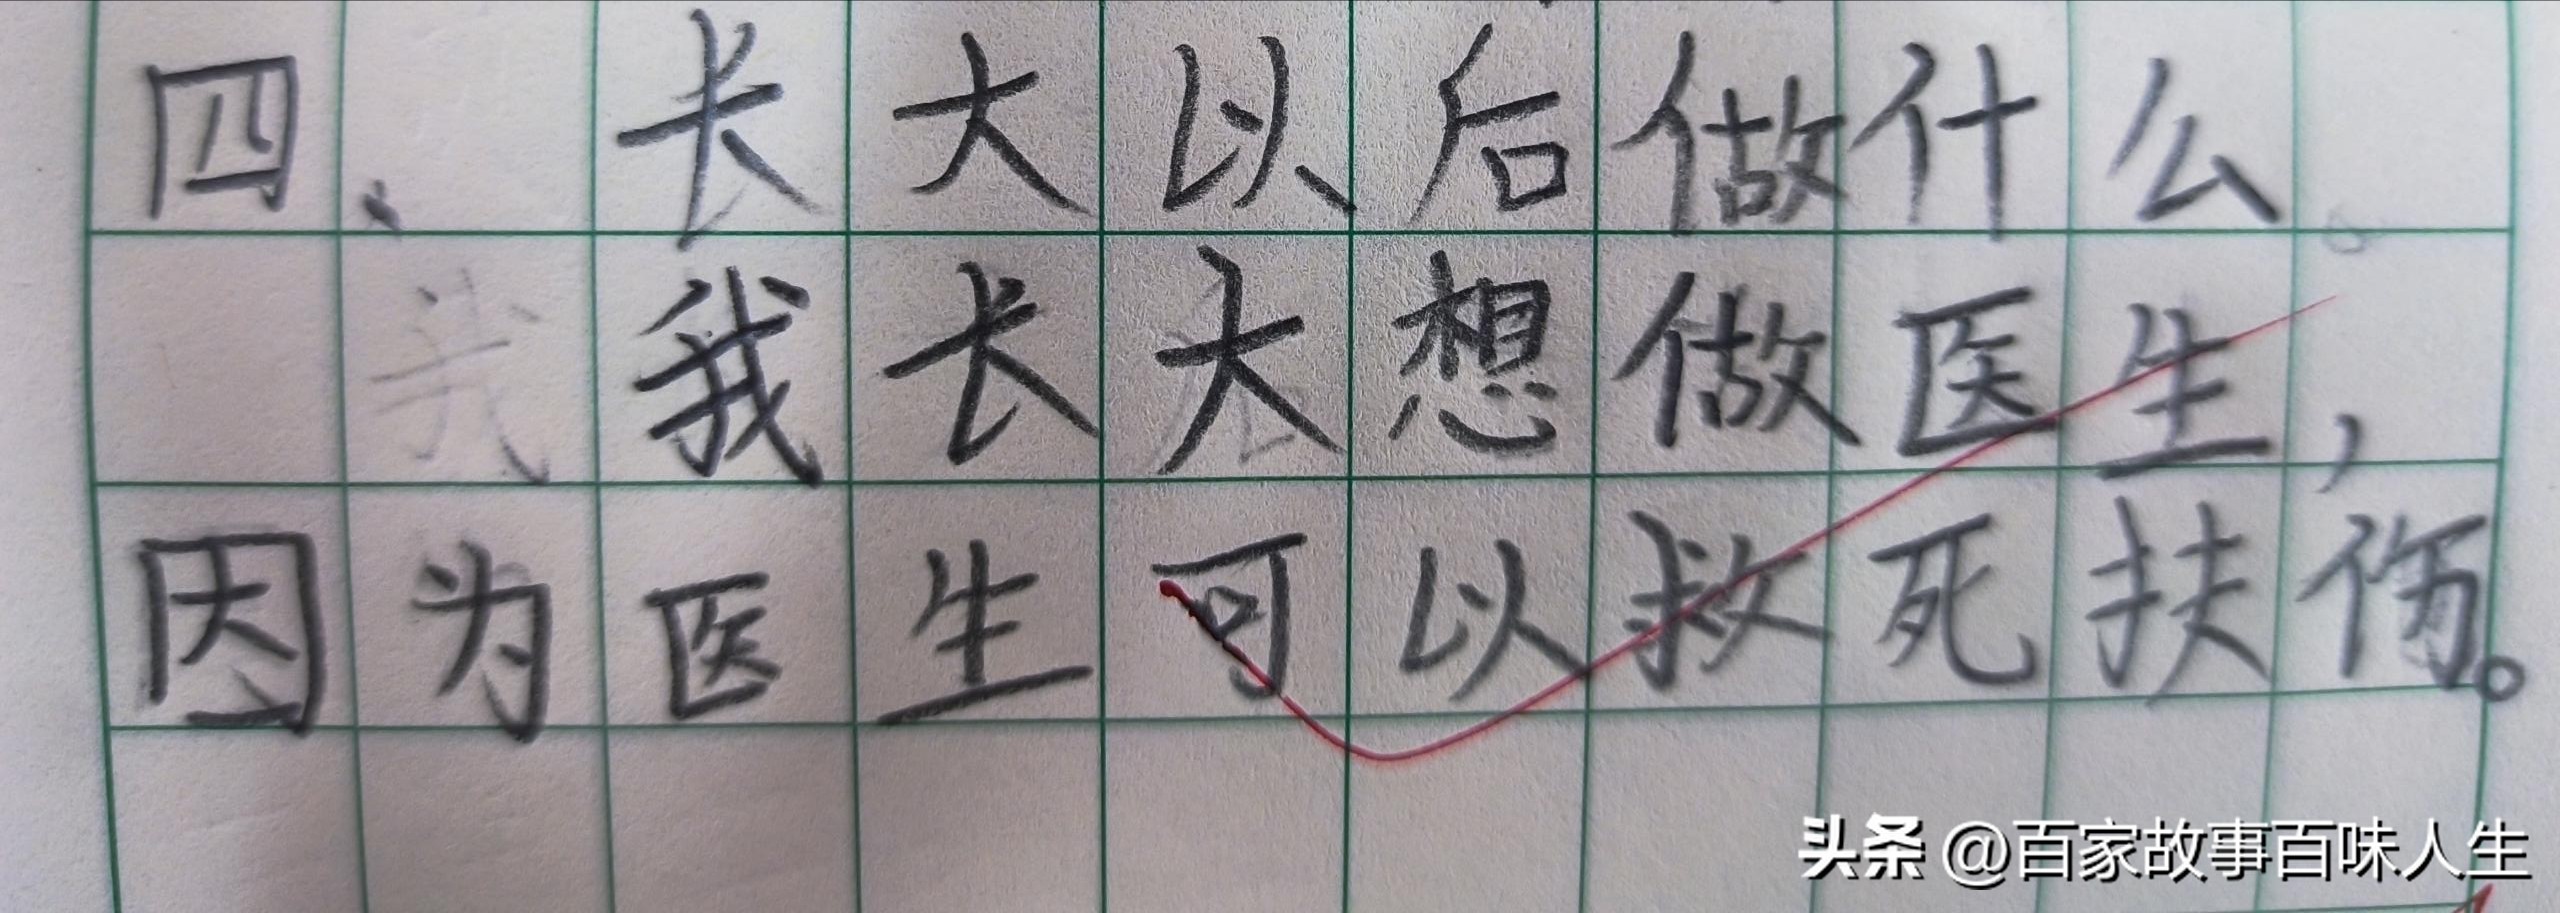 四、长大以后做什么。
我长大想做医生，
因为医生可以救死扶伤。
头条 @百家故事百味人生